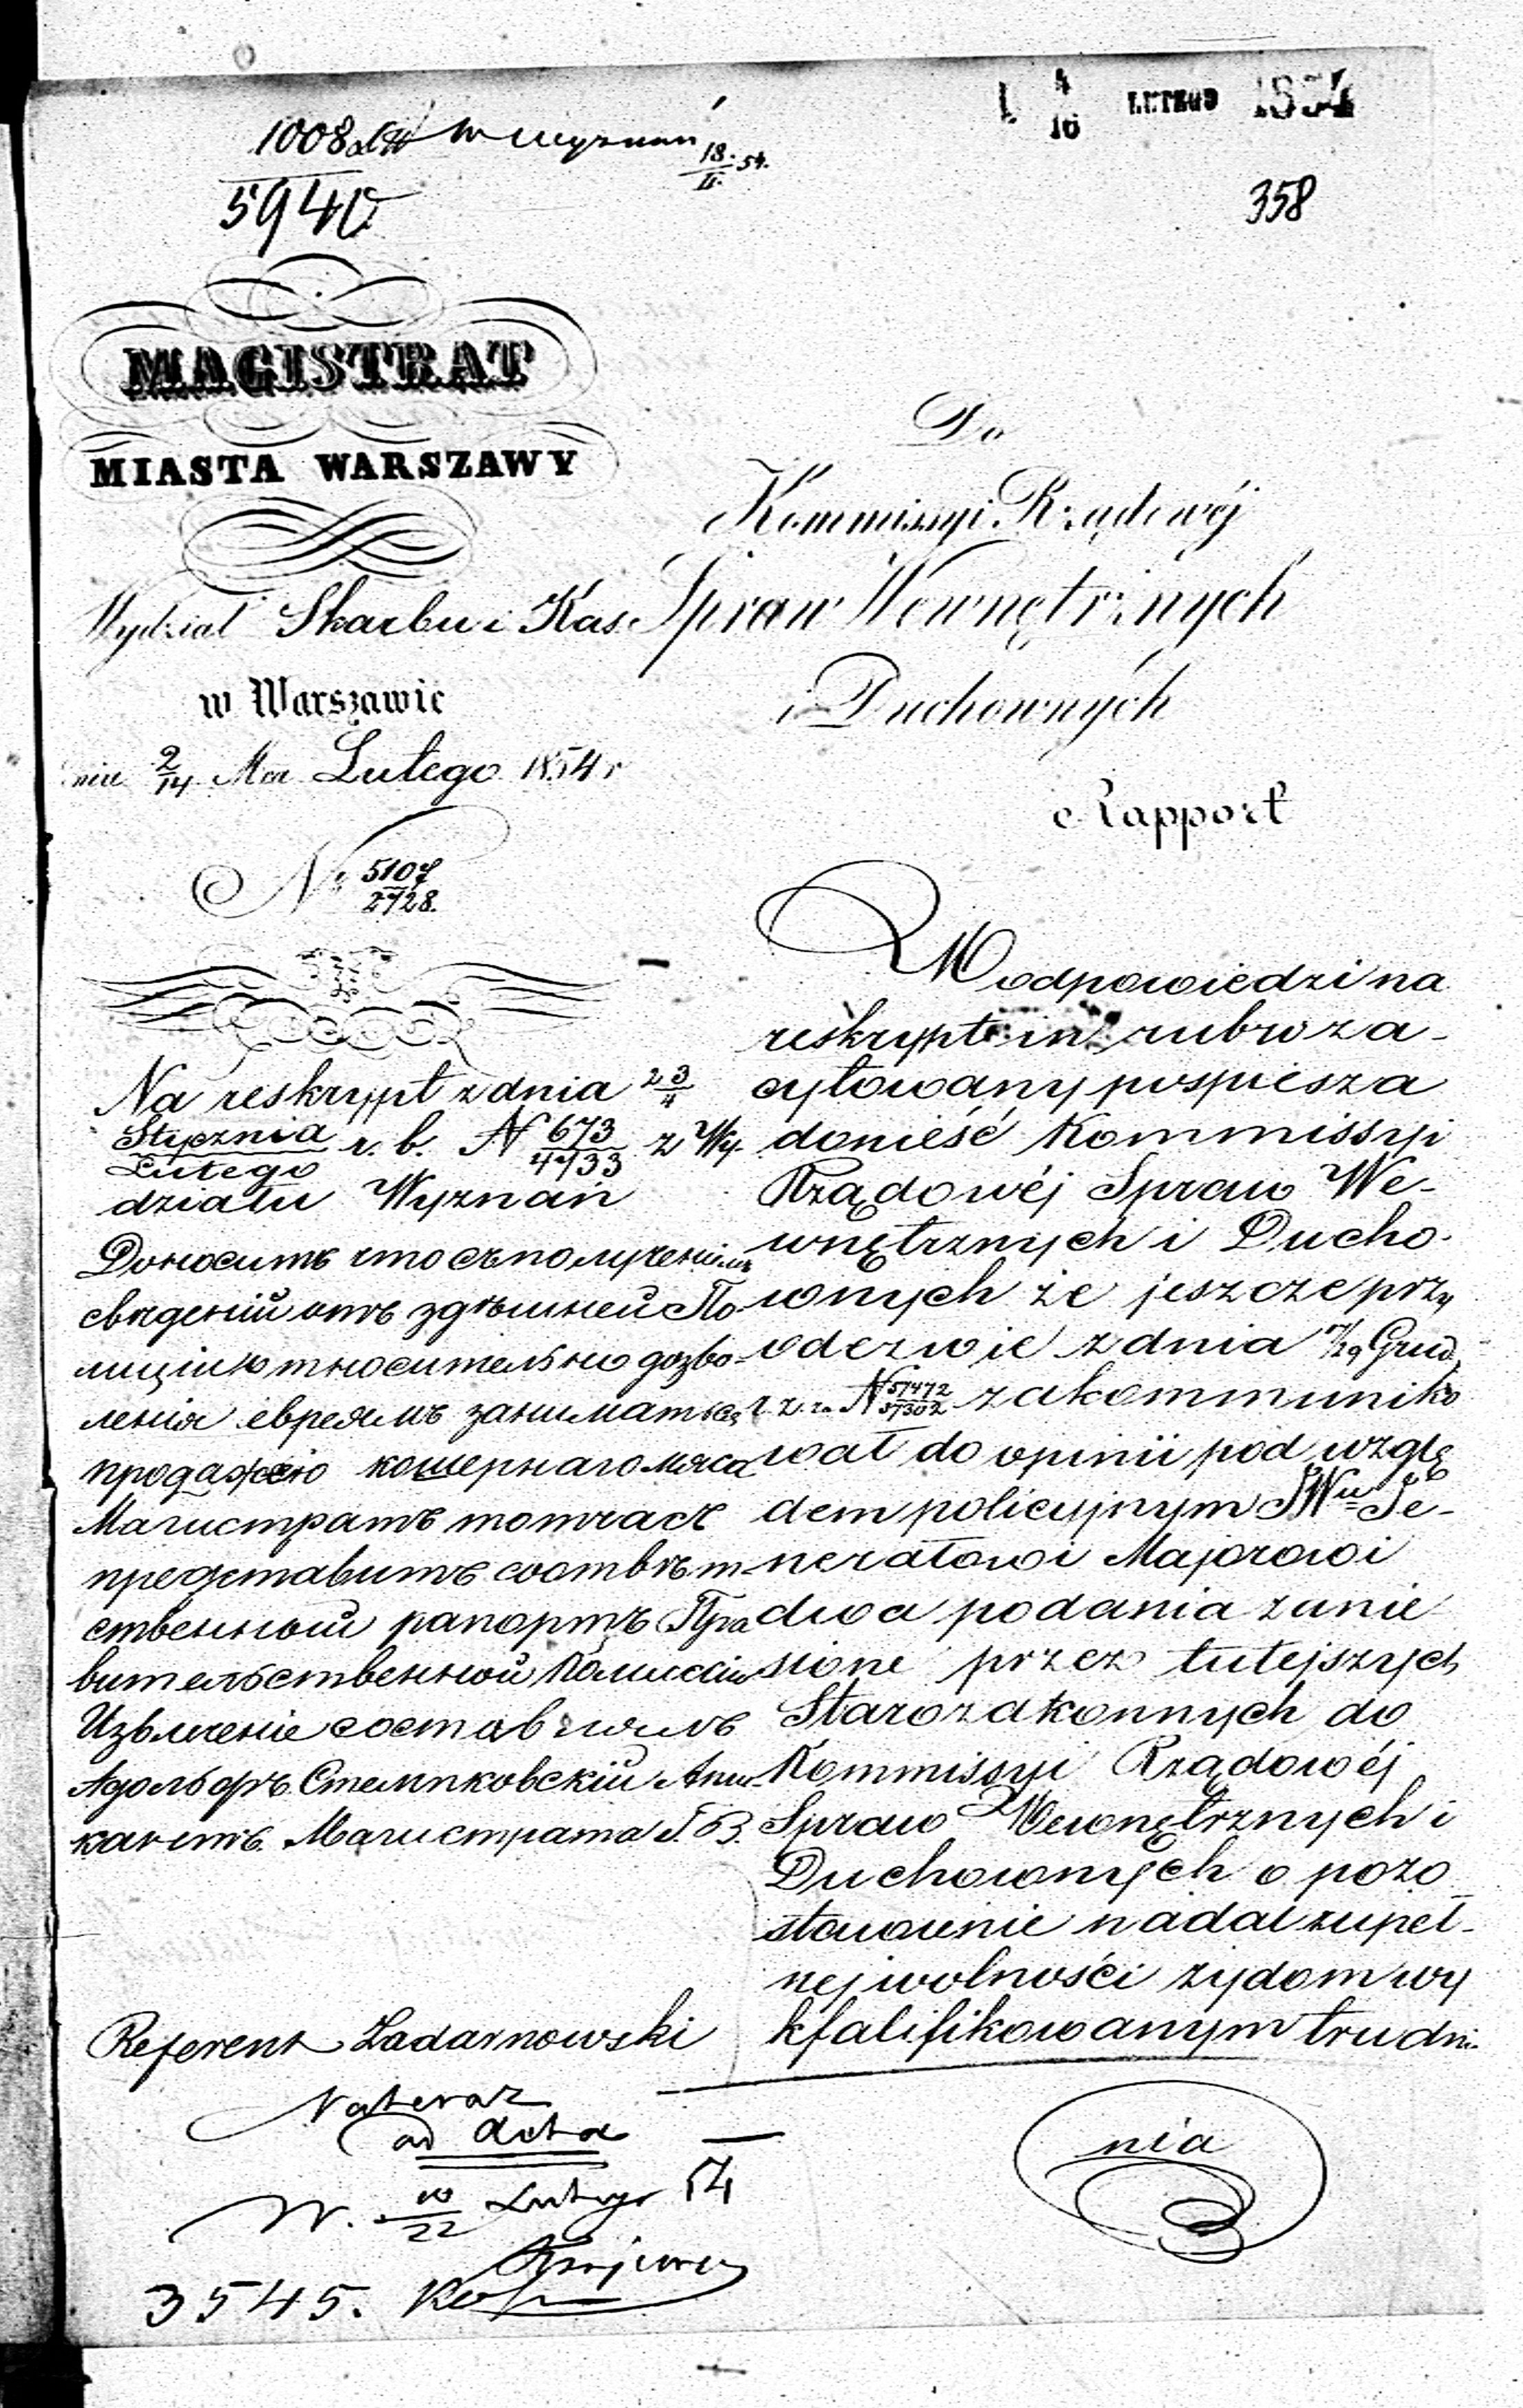 4
16 LUTEGO 1854
1008 Wyznań 18/II 54.
5940
358
MAGISTRAT
MIASTA WARSZAWY
Wydział Skarbu i Kas.
w Warszawie
dnia 2/14 Mca Lutego 1854 r
No 5107/2728.
Na reskrypt z dnia 23/4
Stycznia/Lutego r. b. N 673/4733 z Wy-
działu Wyznań
Доноситъ что съ полученіемъ
свѣденій отъ здѣшней По-
лиціи относительно дозво-
ленія евреямъ заниматься
продажею кошернаго мяса
Магистратъ тотчасъ
представитъ соотвѣт-
ственный рапортъ Пра
вительственной Коммиссіи
Извлеченіе составилъ
Адольфъ Стемпковскій Апли-
кантъ Магистрата Г. В.
Referent
Do
Kommissyi Rządowéj
Spraw Wewnętrznych
i Duchownych
Rapport
W odpowiedzi na
reskrypt in rubro za-
cytowany pospiesza
donieść Kommissyi
Rządowéj Spraw We-
wnętrznych i Ducho-
wnych że jeszcze przy
odezwie z dnia 17/29 Grud.
r. z. za N 57472/37302 zakommuniko
wał do opinii pod wzglę
dem policyjnym JWu Je-
nerałowi Majorowi
dwa podania zanie
sione przez tutejszych
Starozakonnych do
Kommissyi Rządowéj
Spraw Wewnętrznych i
Duchownych o pozo
stawienie nadal zupeł-
nej wolności żydom wy
kfalifikowanym trudni-
nia
Nateraz
ad Acta
W. 10/22 Lutego 54
3545.